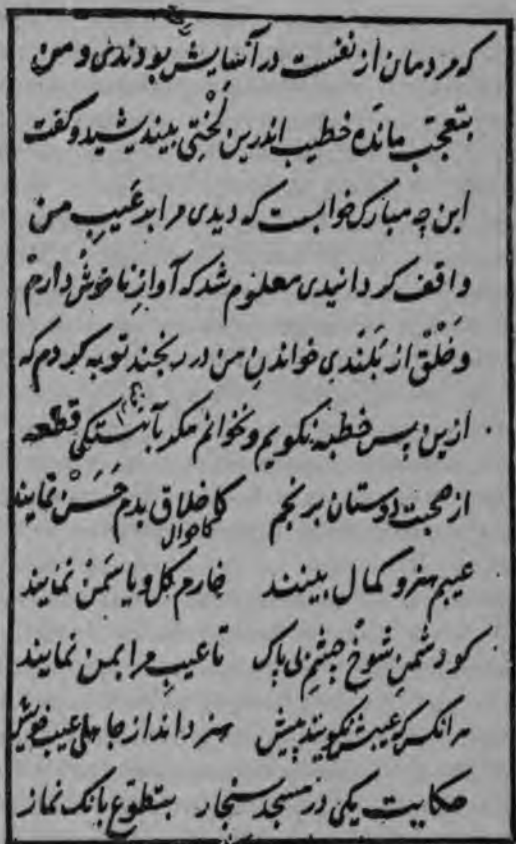 که مردمان از نفست در آسایش بودندی و من
بتعجب مانده خطیب اندرین لَختی بیندیشید و گفت
این چه مبارک خوابست که دیدی مرا بر عَیبِ من
واقف کردانیدی معلوم شد که آوازِ ناخوش دارم
و خَلْق از بَلَندی خواندنِ من در رنجند توبه کردم که
ازین پس خطبه نکویم و نخوانم مکر بآهستکی قطعه
از صحبت دوستان برنجم کاخلاق بدم حَسَنْ نمایند
کاحوال
عیبم هنر و کمال بینند خارم کل و یاسَمَنْ نمایند
کو دشمنِ شوخ چشمِ بی باک تا عیبِ مرا بمن نمایند
هر انکس که عیبش نکویند پیش هنر داند از جاهلی عیب خویش
حکایت یکی در مسجد سنجار بتطوّع بانک نماز